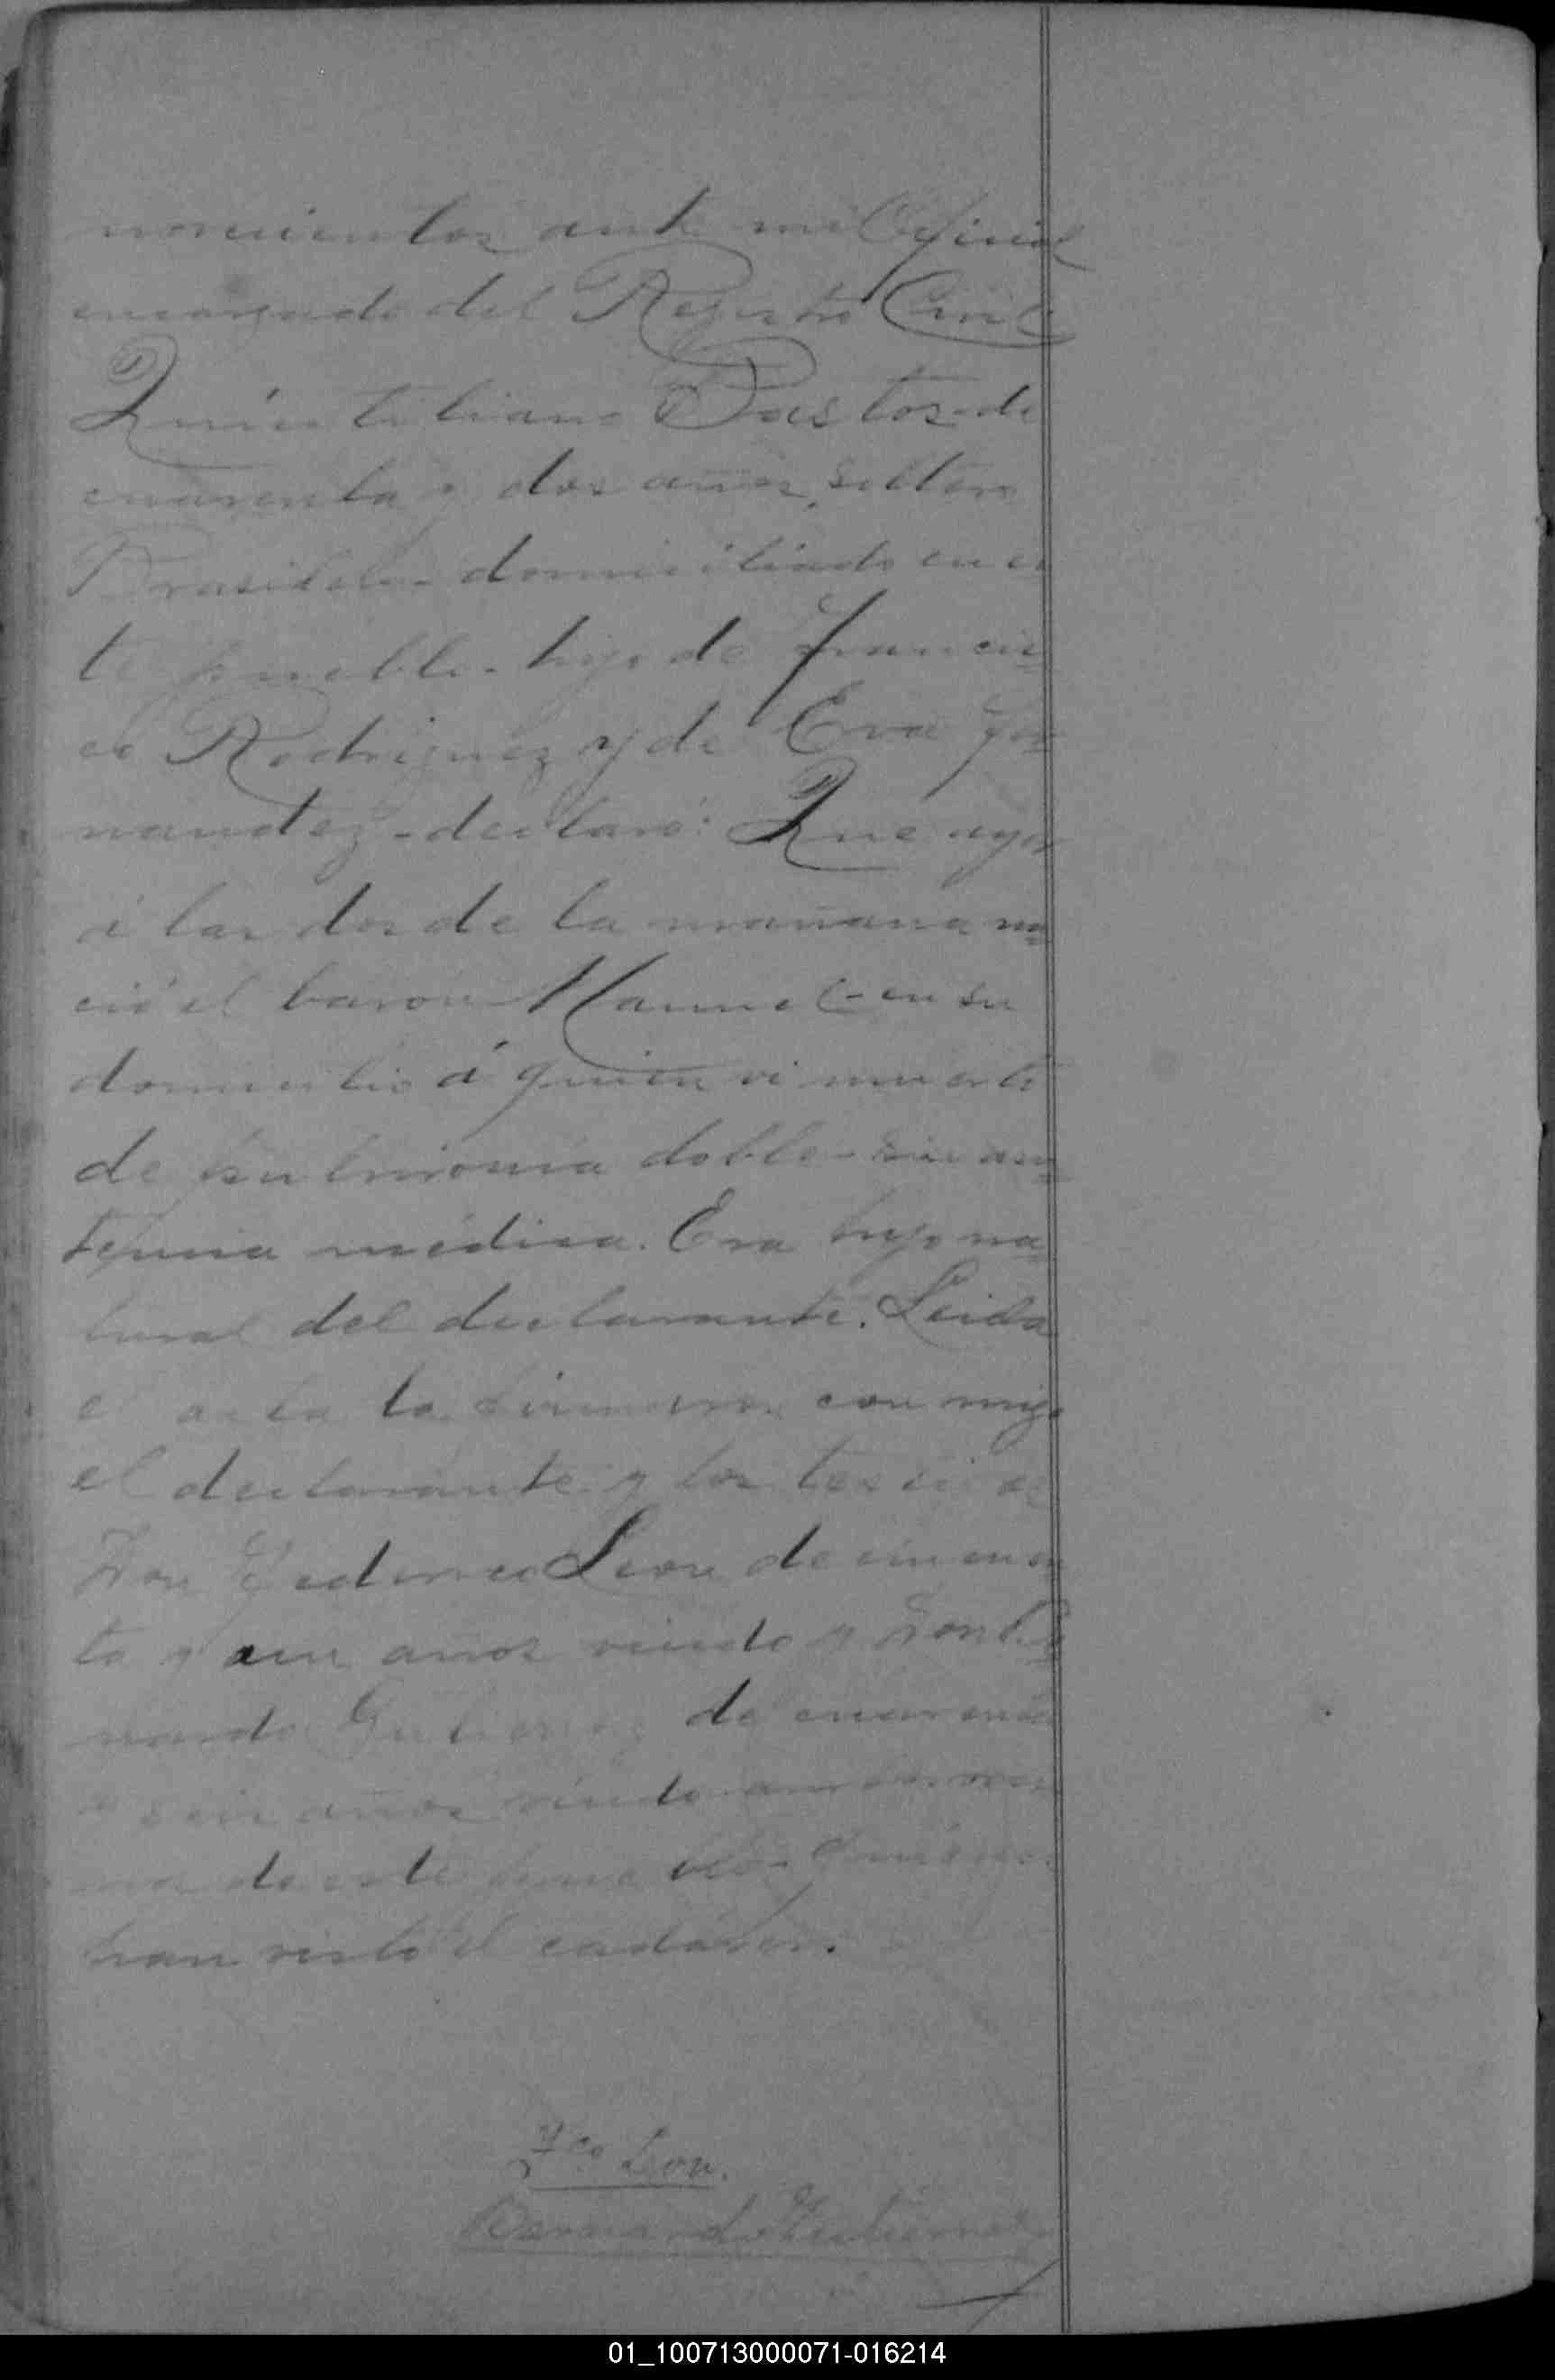 novecientos ante mi Oficial
encargado del Registro Civil
Quintiliano Pastos de
cuarenta y dos años, soltero
domiciliado en es
te pueblo - hijo de Francis
co Rodriguez y de Eva Fer
nandez - declaró: Que ayer
á las dos de la mañana na
ció el baron Manuel - en su
domicilio á quien vi muerto
de pulmonia doble - sin asis
tencia médica. Era hijo na
tural del declarante. Leida
el acta la firmaron con migo
el declarante y los testigos
Don Federico Leon de cincuen
ta y un años viudo y Don Ber
nardo Gutierrez de cuarenta
y seis años viudo
de este pueblo - quienes
han visto el cadáver.
Fco Leon.
Bernardo Gutierrez
01_100713000071-016214